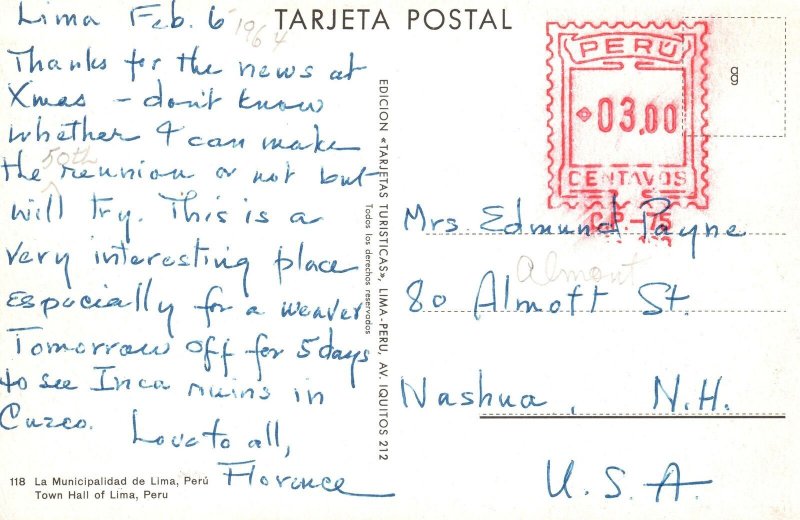 Lima Feb. 6 1964
Thanks for the news at
Xmas – don't know
whether I can make
the 50th reunion or not but
will try. This is a
very interesting place
especially for a weaver
Tomorrow off for 5 days
to see Inca ruins in
Cuzco.
Love to all,
Florence
118 La Municipalidad de Lima, Perú
Town Hall of Lima, Peru
TARJETA POSTAL
EDICION «TARJETAS TURISTICAS», LIMA-PERU, AV. IQUITOS 212
Todos los derechos reservados
PERÚ
03,00
CENTAVOS
C.P.-75
Mrs. Edmund Payne
Almont
80 Almott St.
Nashua, N.H.
U.S.A.